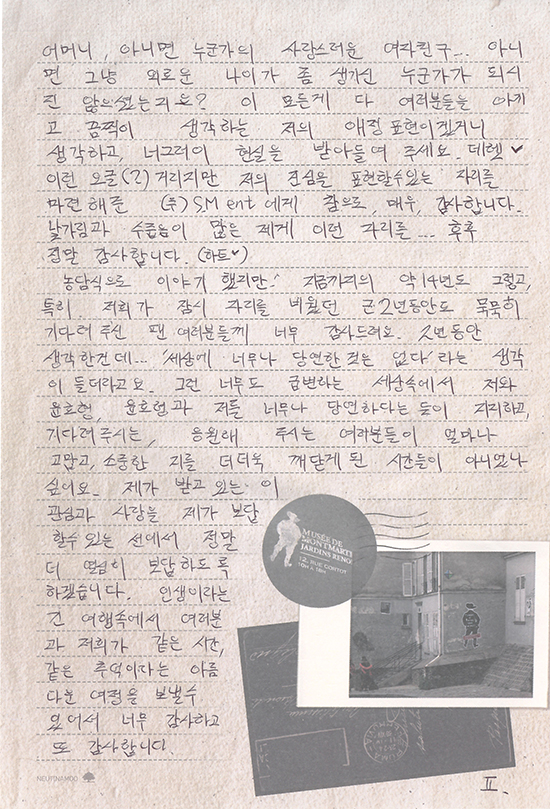 어머니, 아니면 누군가의 사랑스러운 여자친구... 아니
면 그냥 외로운 나이가 좀 생기신 누군가가 되시
진 않으셨는지요? 이 모든게 다 여러분들을 아끼
고 끔찍이 생각하는 저의 애정표현이겠거니
생각하고, 너그러이 현실을 받아들여 주세요. 데헷♥
이런 오글(?)거리지만 저의 진심을 표현할수있는 자리를
마련해준 (주)S.M ent 에게 참으로, 매우, 감사합니다.
낯가림과 수줍음이 많은 제게 이런 자리를.... 후훗
정말 감사합니다. (하트♥)
농담식으로 이야기 했지만.. 지금까지의 약14년도 그렇고,
특히 저희가 잠시 자리를 비웠던 근2년동안도 묵묵히
기다려주신 팬 여러분들께 너무 감사드려요. 2년동안
생각한건데... '세상에 너무나 당연한 것은 없다'라는 생각
이 들더라고요. 그런 너무도 급변하는 세상속에서 저와
윤호형, 윤호형과 저를 너무나 당연하다는 듯이 지지하고,
기다려주시는, 응원해 주시는 여러분들이 얼마나
고맙고, 소중한 지를 더더욱 깨닫게 된 시간들이 아니었나
싶어요. 제가 받고 있는 이
관심과 사랑을 제가 보답
할수 있는 선에서 정말
더 열심히 보답하도록
하겠습니다. 인생이라는
긴 여행속에서 여러분
과 저희가 같은 시간,
같은 추억이라는 아름
다운 여정을 보낼수
있어서 너무 감사하고
또 감사합니다.
MUSÉE DE
MONTMARTRE
JARDINS RENOIR
12, RUE CORTOT
10H À 18H
NEUTINAMOO
II.